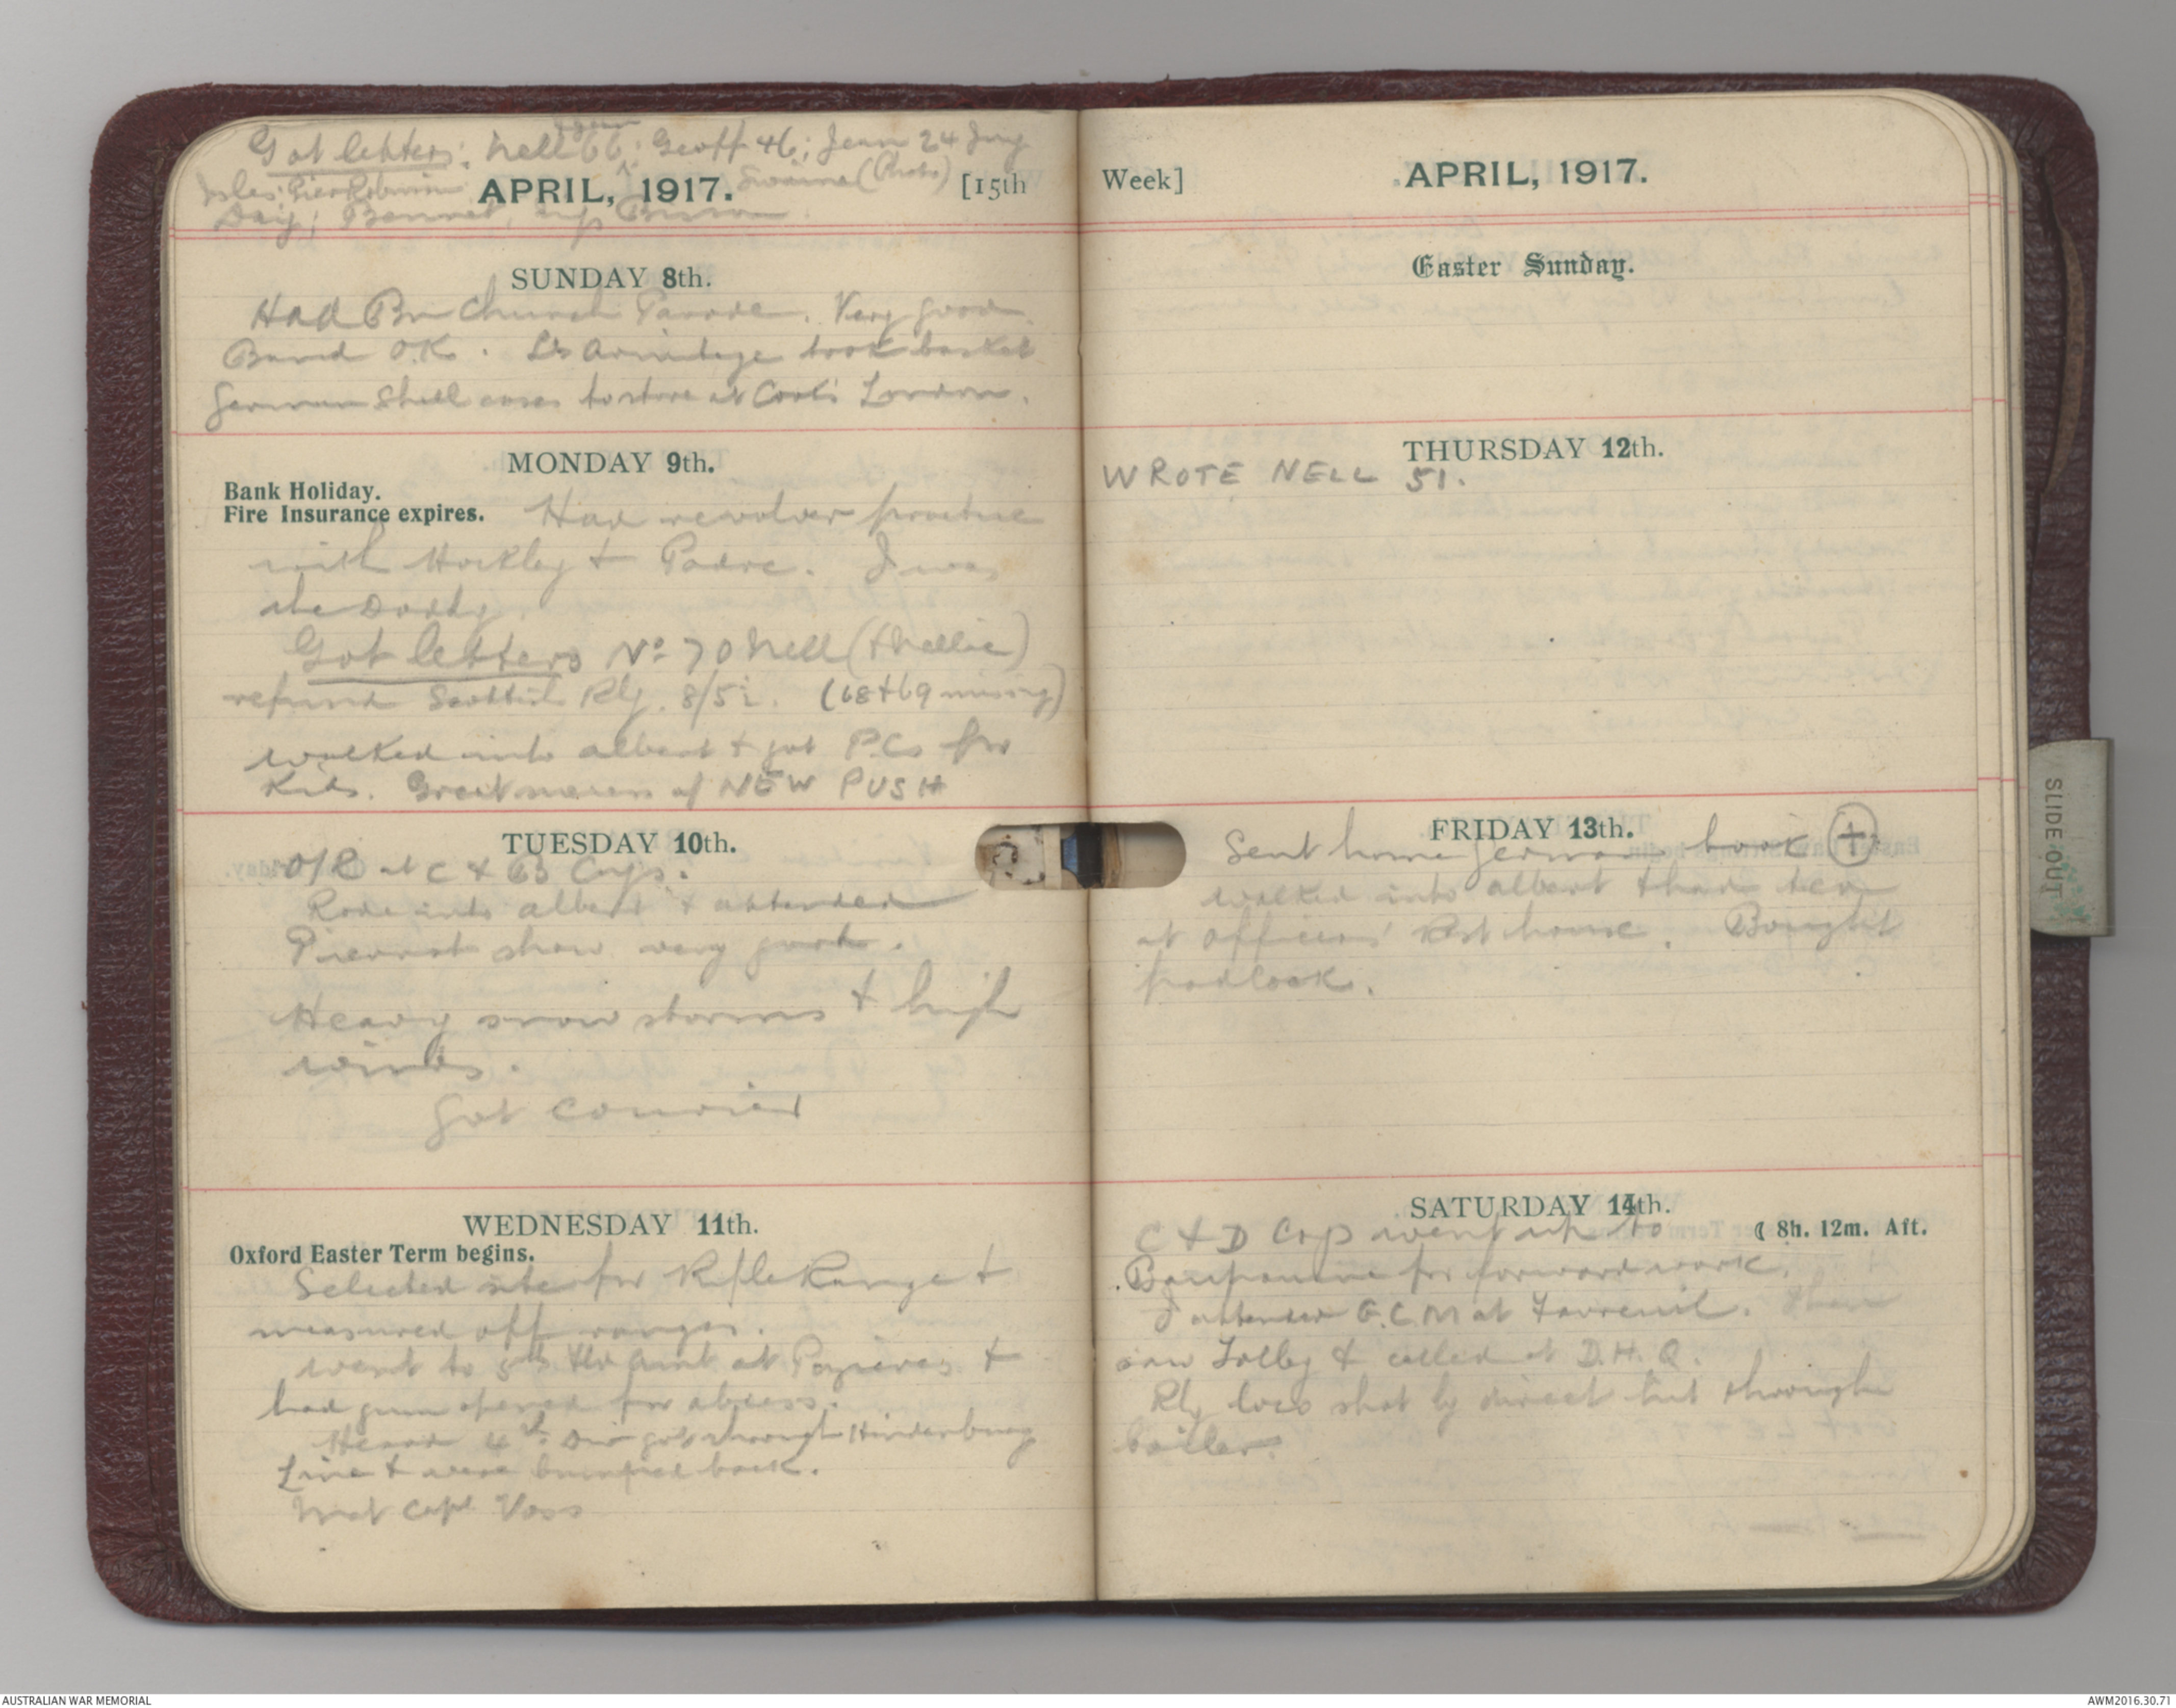 Got letters: Nell 66; Geoff 46; Jean 24 Jny
Isles; Robinson Swaine (Photo)
APRIL, 1917. [15th
Day; Bennet,
SUNDAY 8th.
Had Bn Church Parade. Very good.
Band O.K. Lt Armitage took basket
German Shell cases to store at Cook's London.
MONDAY 9th.
Bank Holiday.
Fire Insurance expires.
Had revolver practice
with Hockley & Padre. I was
the Doddy.
Got letters No 70 Nell (& Nellie)
refund Scottish Rly. 8/5½. (68 & 69 missing)
walked into albert & got P.Cs for
Kids. Great news of NEW PUSH
TUESDAY 10th.
O/R at C & B Coys.
Rode into albert & attended
Pierrot show very good.
Heavy snow storms & high
winds.
Got courier
WEDNESDAY 11th.
Oxford Easter Term begins.
Selected site for Rifle Range &
measured off ranges.
went to 5th Fld Amb at Pozieres &
had gum opened for abcess.
Heard 4th Div got through Hindenburg
Line & were bumped back.
Met Capt Voss
Week] APRIL, 1917.
Easter Sunday.
THURSDAY 12th.
WROTE NELL 51.
FRIDAY 13th.
Sent home German book +
walked into albert & had tea
at Officers' Rest house. Bought
padlock.
SATURDAY 14th.
☾ 8h. 12m. Aft.
C & D Coy went up to
Bapaume for forward work.
I attended G.C.M at Favreuil.
saw Tolley & called at D.H.Q.
Rly loco shot by direct hit through
boiler.
SLIDE OUT
AUSTRALIAN WAR MEMORIAL
AWM2016.30.71